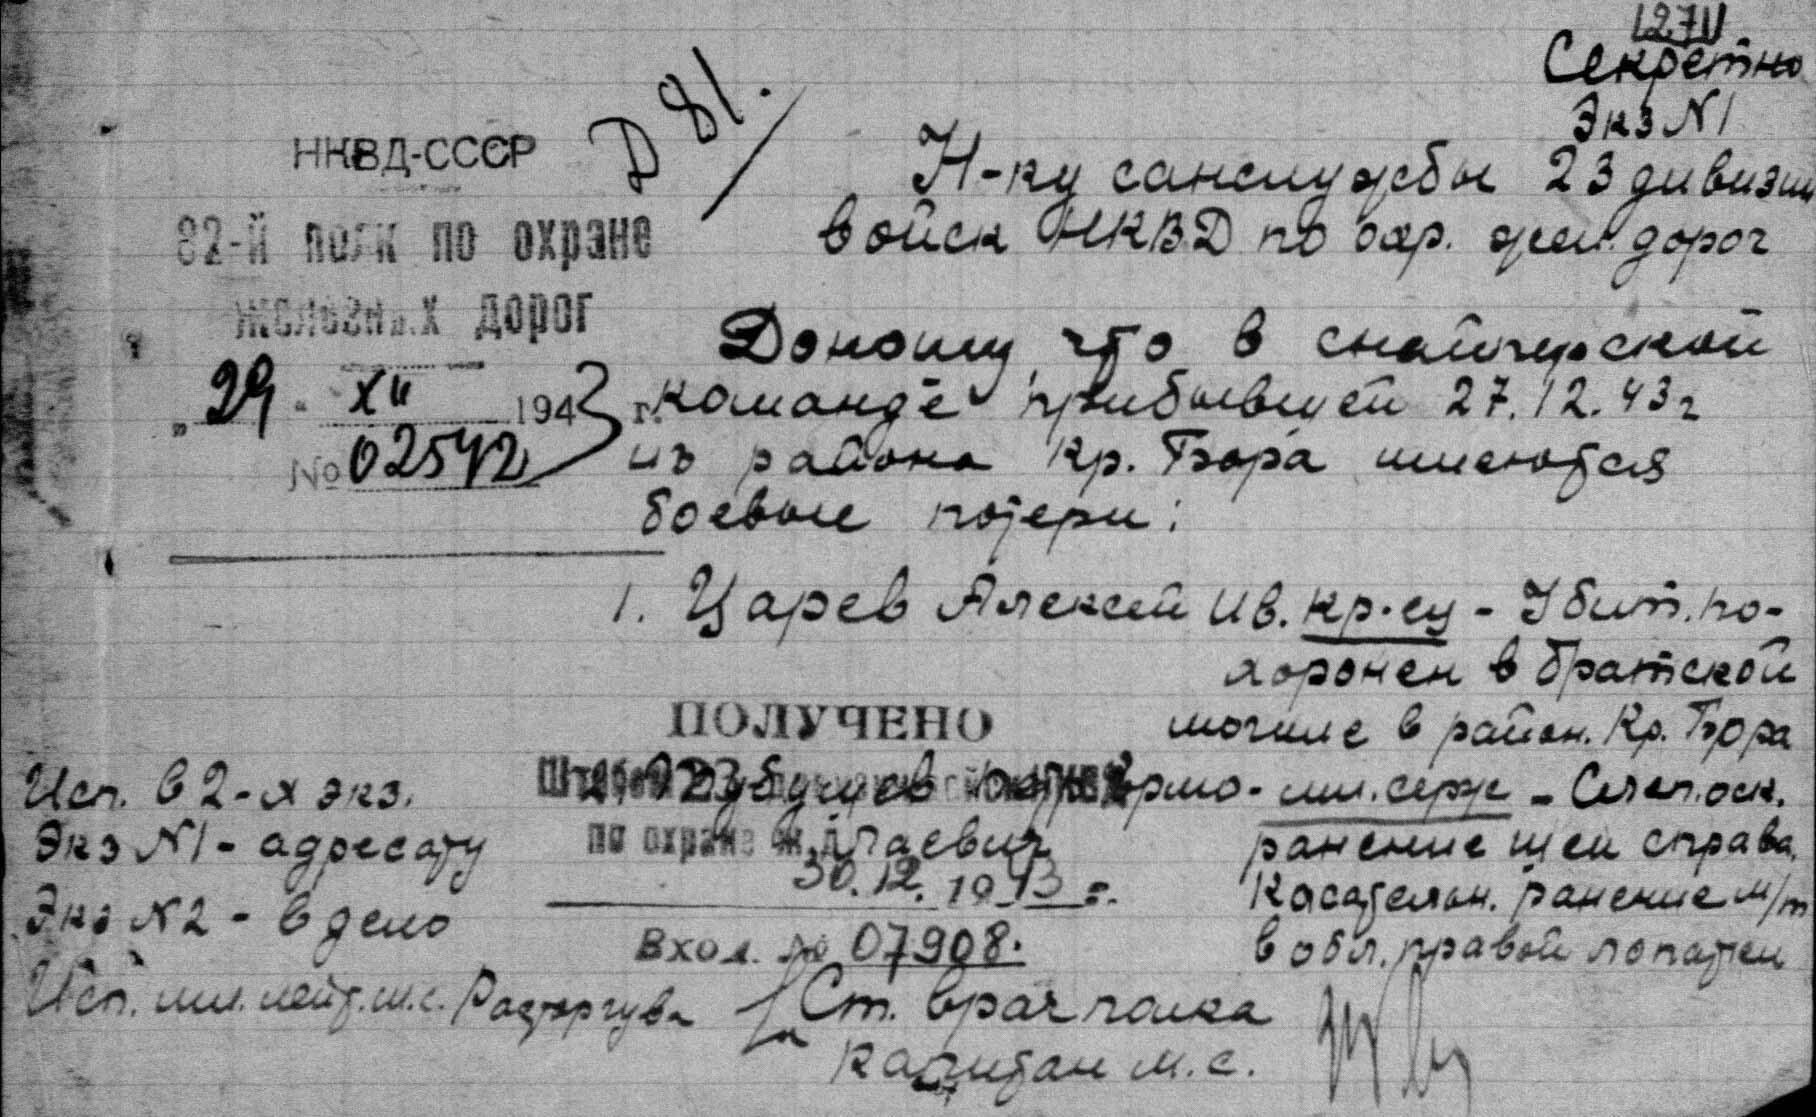 1271
Секретно
Экз N 1
Д 81.
НКВД-СССР
82-й полк по охране
железных дорог
„29" XII 1943 г.
№ 02542
Н-ку санслужбы 23 дивизии
войск НКВД по охр. жел. дорог
Доношу, что в снайперской
команде прибывшей 27.12.43 г
из района Кр. Бора имеются
боевые потери:
1. Царев Алексей Ив. кр-ец - Убит. по-
хоронен в братской
могиле в район. Кр. Бора
2. мл. серж - Слеп. оск.
ранение шеи справа.
Касательн. ранение м/т
в обл. правой лопатки
ПОЛУЧЕНО
по охране ж.
30.12. 1943 г.
Вход. № 07908.
Исп. в 2-х экз.
Экз N 1 - адресату
Экз N 2 - в дело
Исп. мл. лейт. м.с. Расторгуева
Ст. врач полка
капитан м.с.